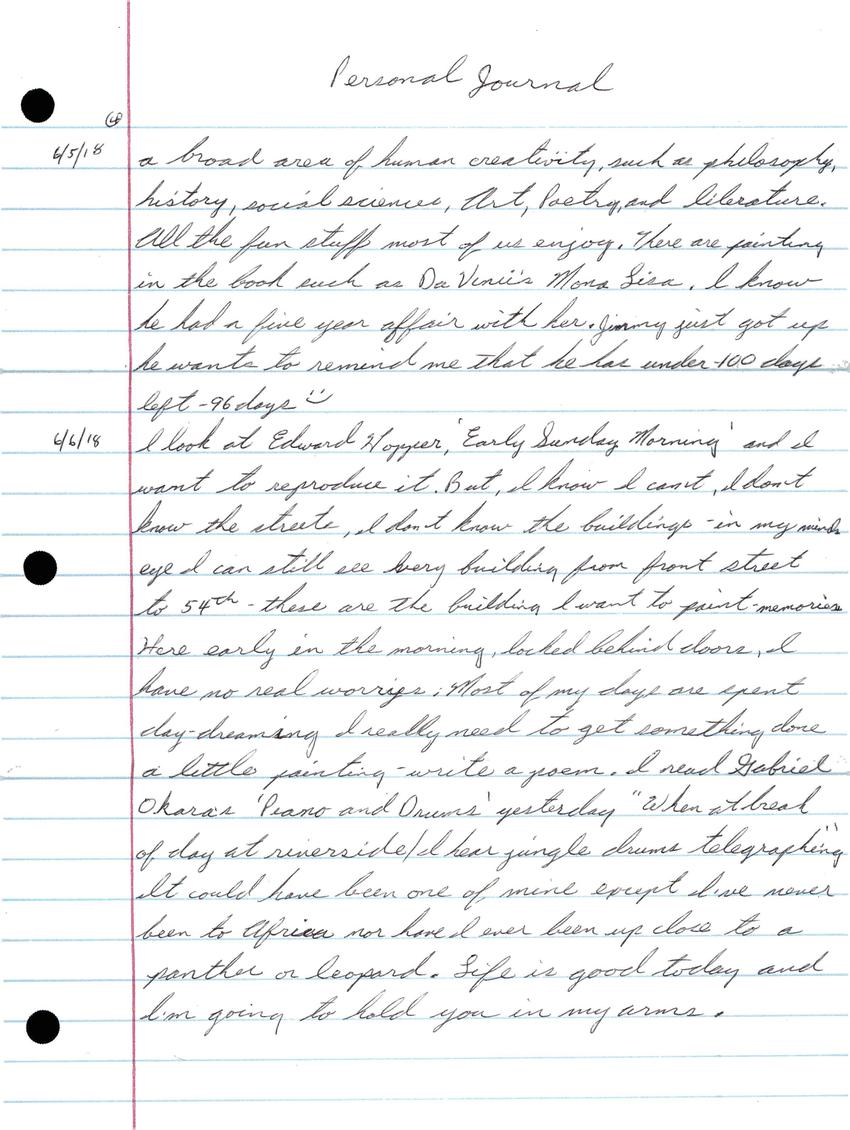 Personal Journal
④
6/5/18 a broad area of human creativity, such as philosophy,
history, social sciences, Art, Poetry, and literature.
All the fun stuff most of us enjoy. There are painting
in the book such as Da Vinii's Mona Lisa. I know
he had a five year affair with her. Jimmy just got up
he wants to remind me that he has under-100 days
left - 96 days
6/6/18 I look at Edward Hopper, 'Early Sunday Morning' and I
want to reproduce it. But, I know I can't, I don't
know the streets, I don't know the buildings - in my minds
eye I can still see every building from front street
to 54th - these are the building I want to paint - memories
Here early in the morning, locked behind doors, I
have no real worries. Most of my days are spent
day-dreaming I really need to get something done
a little painting - write a poem. I read Gabriel
Okara's 'Piano and Drums' yesterday "When at break
of day at riverside/I hear jungle drums telegraphing"
It could have been one of mine except I've never
been to Africa nor have I ever been up close to a
panther or leopard. Life is good today and
I'm going to hold you in my arms.